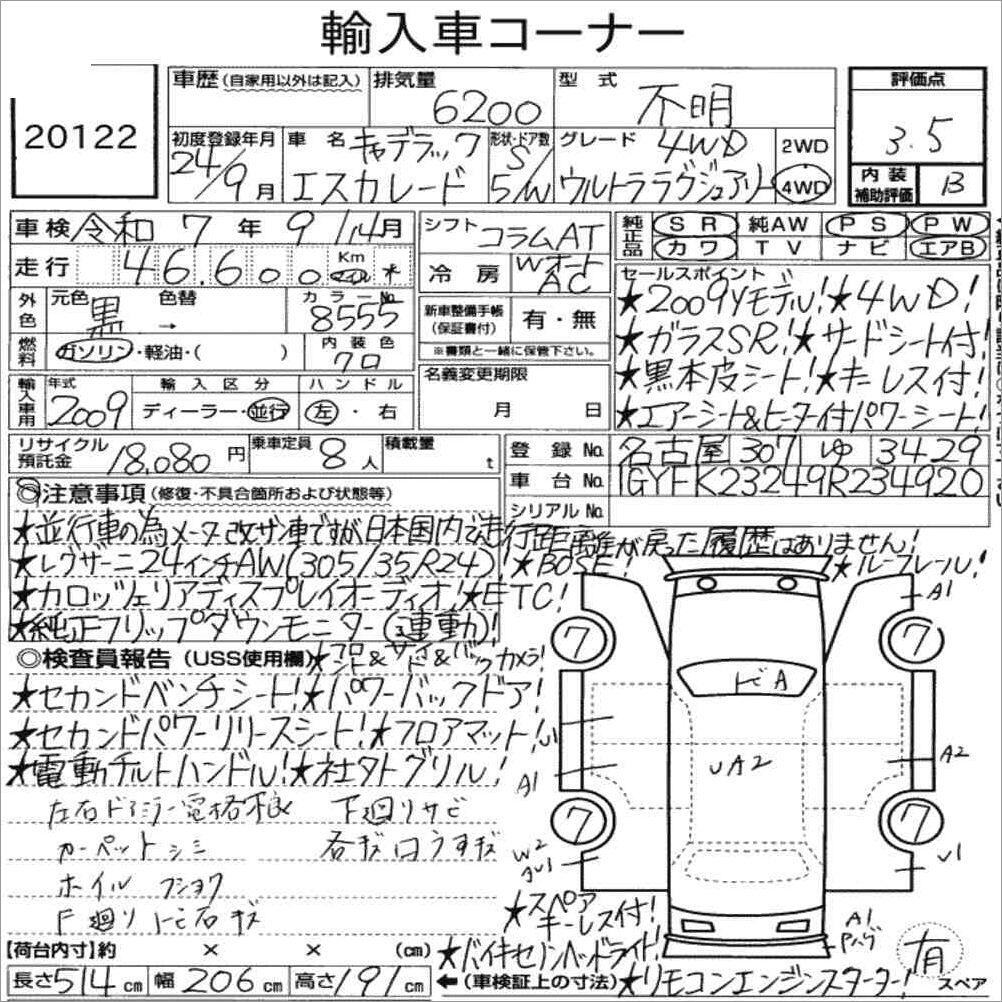 輸入車コーナー
20122
車歴 (自家用以外は記入)
排気量
6200
型式
不明
評価点
3.5
内装補助評価
B
初度登録年月
24/9月
車名
キャデラック
エスカレード
形状・ドア数
S/5/W
グレード
4WD
ウルトララグジュアリー
2WD
4WD
車検 令和 7 年 9/14月
走行 46,600 Km
シフト コラムAT
冷房 Wオート AC
純正品
SR 純AW PS PW
カワ TV ナビ エアB
外色 元色 黒 色替 →
カラーNo. 8555
燃料 ガソリン・軽油・( )
内装色 クロ
新車整備手帳 (保証書付) 有・無
※書類と一緒に保管下さい。
セールスポイント
★2009Yモデル!★4WD!
★ガラスSR!★サードシート付!
★黒本皮シート!★キーレス付!
★エアーシート&ヒーター付パワーシート!
輸入車用 年式 2009
輸入区分 ディーラー・並行
ハンドル 左・右
名義変更期限
月 日
リサイクル預託金 18,080円
乗車定員 8人
積載量 t
登録No. 名古屋 307 ゆ 3429
車台No. 1GYFK23249R234920
シリアルNo.
◎注意事項 (修復・不具合箇所および状態等)
★並行車の為メーター改ザン車ですが日本国内で走行距離が戻った履歴はありません!
★レグザーニ24インチAW(305/35R24) ★BOSE! ★ルーフレール!
★カロッツェリアディスプレイオーディオ!★ETC!
★純正フリップダウンモニター(連動)!
◎検査員報告 (USS使用欄) ★フロント&サイド&バックカメラ!
★セカンドベンチシート!★パワーバックドア!
★セカンドパワーリリースシート!★フロアマット!
★電動チルトハンドル!★社外グリル!
左右ドアミラー電格不良 下廻りサビ
カーペットシミ 各キズ凹うすキズ
ホイル フショク
下廻り 凹キズ
A1
7
7
U1
A1
A2
UA2
7
7
W2
U1
★スペアキーレス付!
★バイキセノンヘッドライト!
A1
有
スペア
【荷台内寸】約 × × (cm)
長さ514cm 幅206cm 高さ191cm
←(車検証上の寸法)
★リモコンエンジンスターター!